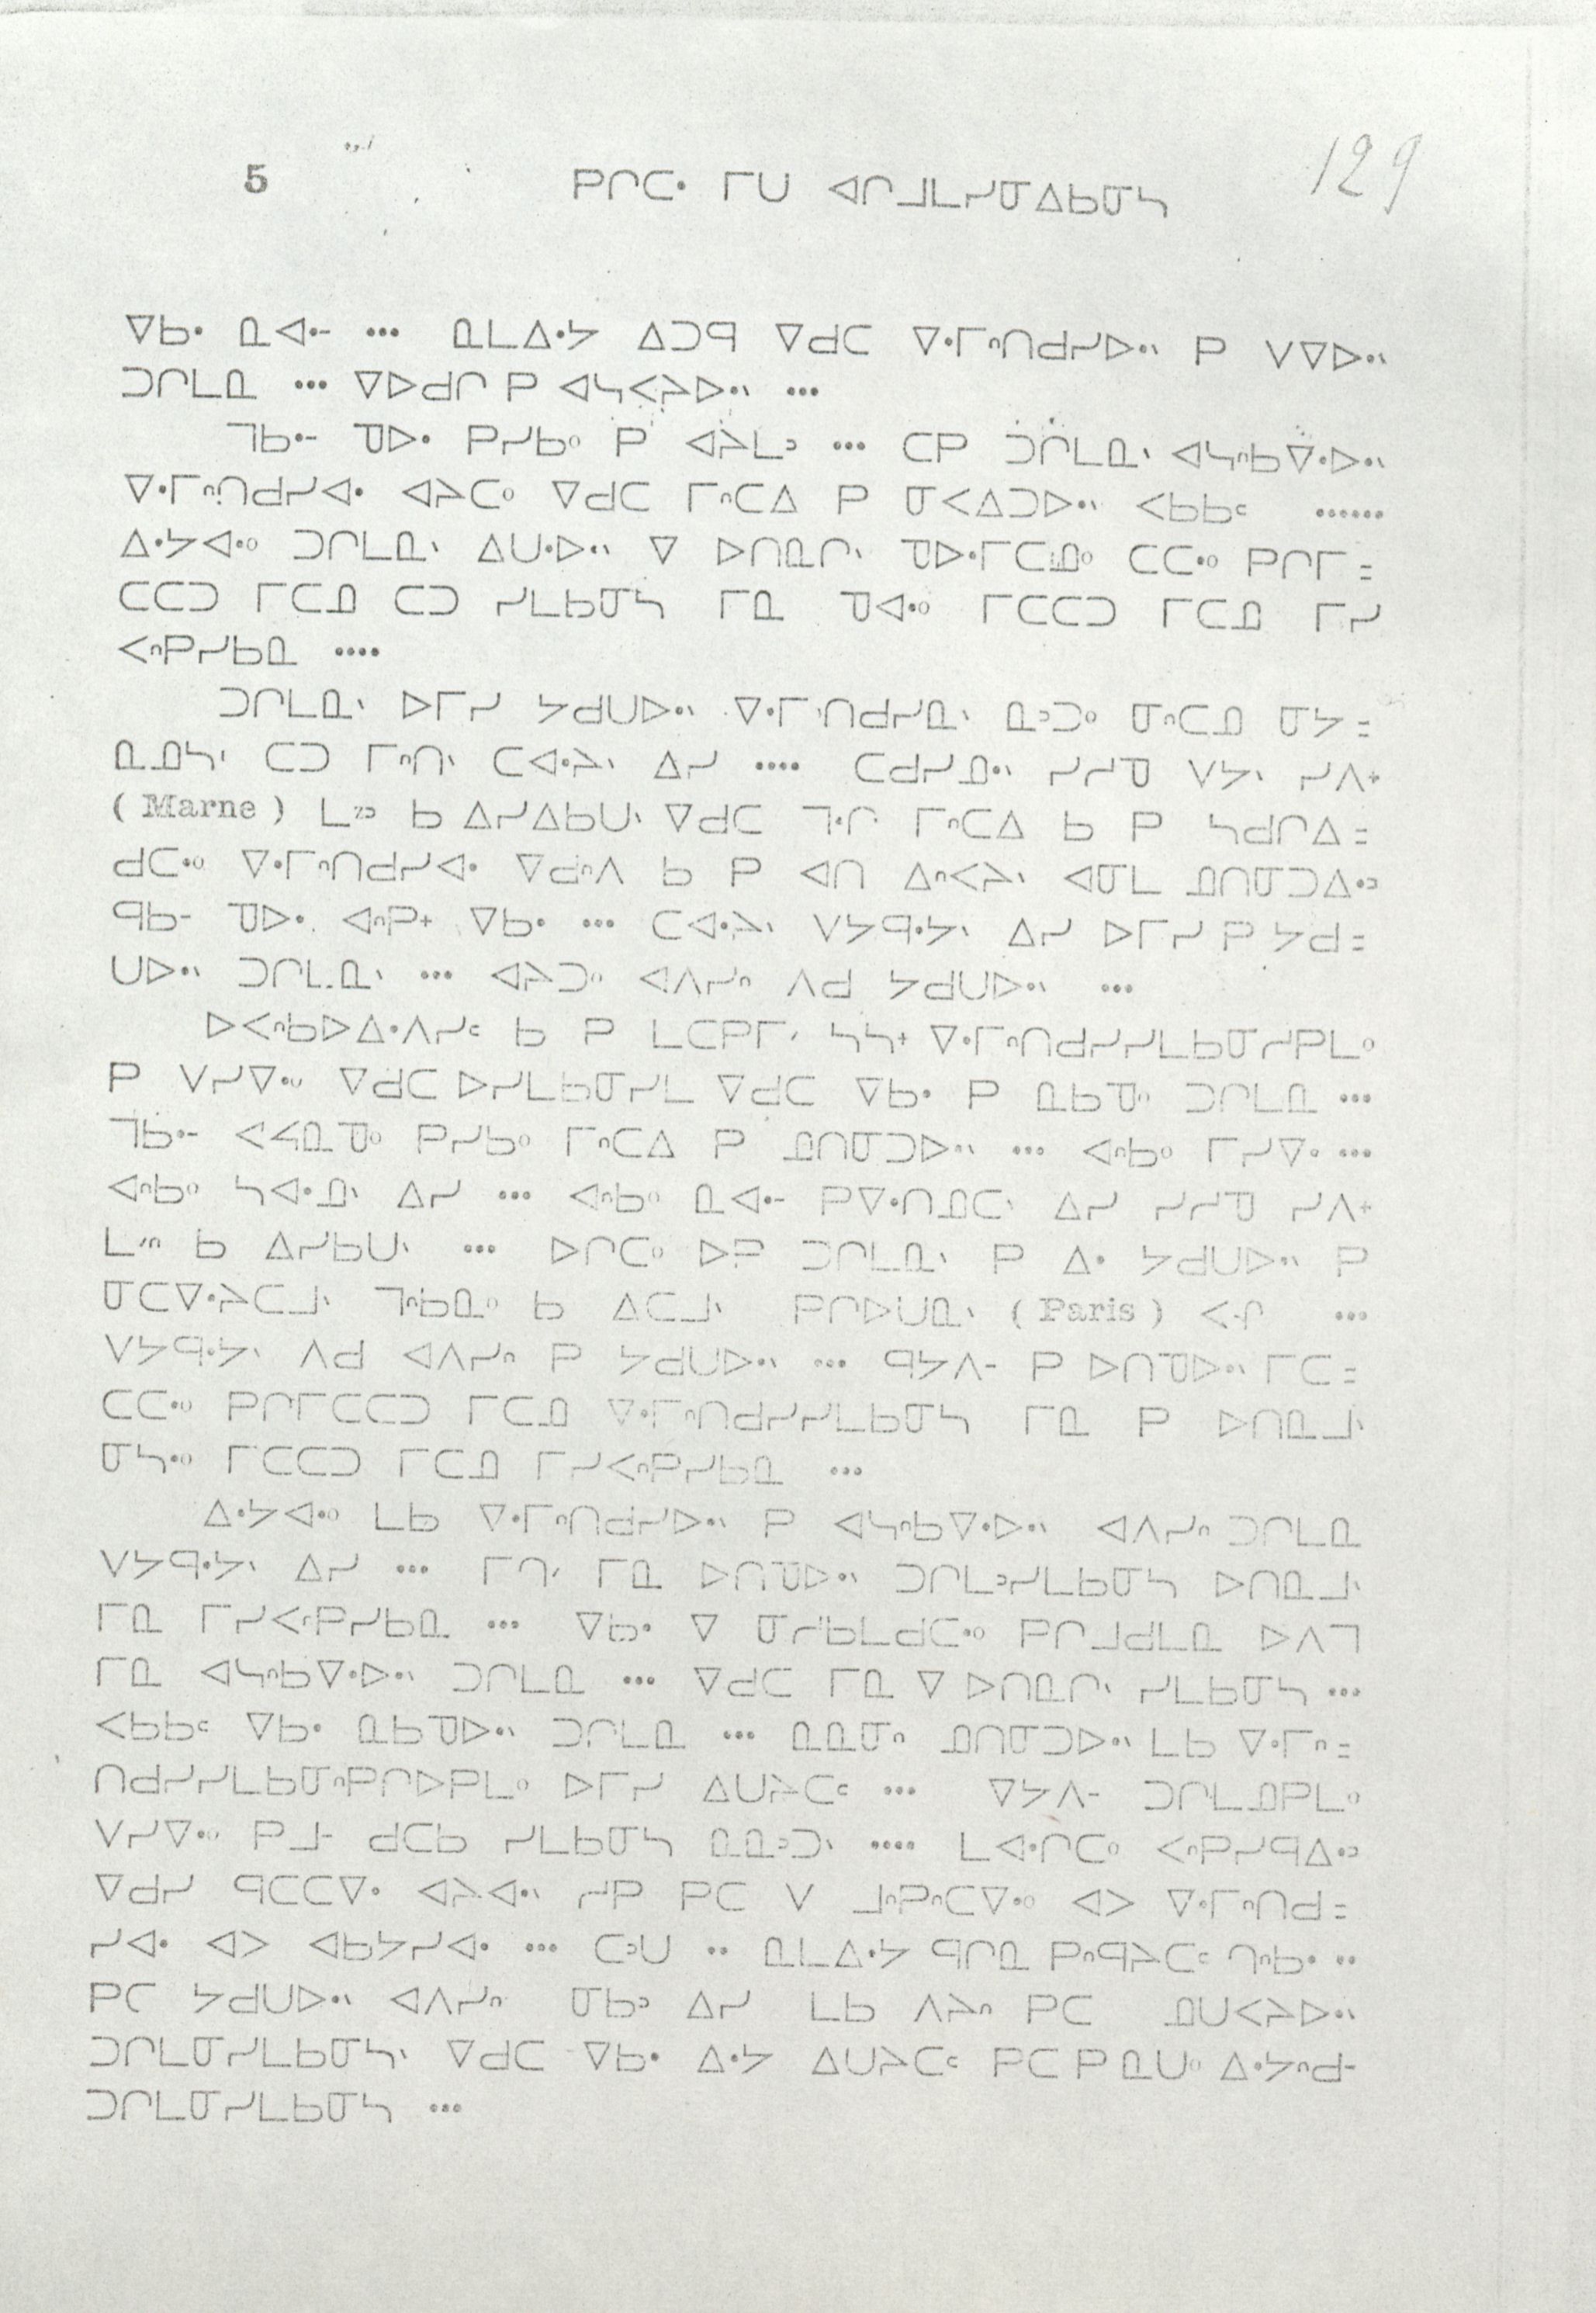 5 ᑭᒋᑕᐧ ᒥᑌ ᐊᒋᒧᒪᓯᓂᐃᑲᓂᓴ 129
ᐁᑲᐧ ᓇᐊᐧᐨ ••• ᓇᒪᐃᐧᔭ ᐃᑐᑫ ᐁᑯᑕ ᐁᐧᒥᐢᑎᑯᓯᐅᐧᐠ ᑭ ᐯᐁᐅᐧᐠ
ᑐᒋᒪᓇ ••• ᐁᐅᑯᒋ ᑭ ᐊᓴᐸᔨᐅᐧᐠ •••
ᒣᑲᐧᐨ ᑫᐅᐧ ᑭᓯᑲᐤ ᑭ ᐊᔨᒪᐣ ••• ᑕᑭ ᑐᒋᒪᓇᐠ ᐊᓴᐢᑲᐁᐧᐅᐧᐠ
ᐁᐧᒥᐢᑎᑯᓯᐊᐧ ᐊᔨᑕᐤ ᐁᑯᑕ ᒥᐢᑕᐃ ᑭ ᓂᐸᐃᑐᐅᐧᐠ ᐸᑲᑲᑦ ••••••
ᐃᐧᔭᐊᐧᐤ ᑐᒋᒪᓇᐠ ᐃᑌᐧᐅᐧᐠ ᐁ ᐅᑎᓇᒋᐠ ᑕᑕᐧᐤ ᑭᒋᒥ =
ᑕᑕᑐ ᒥᑕᓄ ᑕᑐ ᓯᒪᑲᓂᓴ ᒥᓇ ᓀᐊᐧᐤ ᒥᑕᑕᑐ ᒥᑕᓄ ᒥᓯ
ᐸᐢᑭᓯᑲᓇ ••••
ᑐᒋᒪᓇᐠ ᐅᒥᓯ ᔭᑯᑌᐅᐧᐠ ᐁᐧᒥᐢᑎᑯᓯᓇᐠ ᓇᐣᑐᐤ ᓂᐢᑕᓄ ᓂᔭ =
ᓇᓄᓴᐠ ᑕᑐ ᒥᐢᑎᐠ ᑕᐊᐧᔨᐠ ᐃᓯ •••• ᑕᑯᓯᓄᐧᐠ ᓯᓯᓀ ᐯᔭᐠ ᓯᐱᐩ
( Marne ) ᑲ ᐃᓯᐃᑲᑌᐠ ᐁᑯᑕ ᒥᐢᑕᐃ ᑲ ᑭ ᓴᑯᒋᐃ =
ᑯᑕᐧᐤ ᐁᐧᒥᐢᑎᑯᓯᐊᐧ ᐁᑯᐢᐱ ᑲ ᑭ ᐊᑎ ᐃᐢᐸᔨᐠ ᐊᓂᒪ ᓄᑎᓂᑐᐃᐧᐣ
ᑫᑲᐨ ᓀᐅᐧ ᐊᐢᑭᐩ ᐁᑲᐧ ••• ᑕᐊᐧᔨᐠ ᐯᔭᑫᐧᔭᐠ ᐃᓯ ᐅᒥᓯ ᑭ ᔭᑯ =
ᑌᐅᐧᐠ ᑐᒋᒪᓇᐠ ••• ᐊᔨᑐᐤ ᐊᐱᓯᐢ ᐱᑯ ᔭᑯᑌᐅᐧᐠ •••
ᐅᐸᐢᑲᐅᐃᐧᐱᓯᑦ ᑲ ᑭ ᒪᑕᑭᒥᐟ ᓴᓴᐩ ᐁᐧᒥᐢᑎᑯᓯᓯᒪᑲᓂᓯᑭᒪᐤ
ᑭ ᐯᓯᐁᐧᐤ ᐁᑯᑕ ᐅᓯᒪᑲᓂᓯᒪ ᐁᑯᑕ ᐁᑲᐧ ᑭ ᓇᑲᓀᐤ ᑐᒋᒪᓇ •••
ᒣᑲᐧᐨ ᐸᔕᓇᓀᐤ ᑭᓯᑲᐤ ᒥᐢᑕᐃ ᑭ ᓄᑎᓂᑐᐅᐧᐠ ••• ᐊᐢᑲᐤ ᒥᓯᐁᐧ •••
ᐊᐢᑲᐤ ᓴᐊᐧᓄᐠ ᐃᓯ ••• ᐊᐢᑲᐤ ᓇᐊᐧᐨ ᑭᐁᐧᑎᓄᑕᐠ ᐃᓯ ᓯᓯᓀ ᓯᐱᐩ
ᑲ ᐃᓯᑲᑌᐠ ••• ᐅᒋᑕᐤ ᐅᑭ ᑐᒋᒪᓇᐠ ᑭ ᐃᐧ ᔭᑯᑌᐅᐧᐠ ᑭ
ᓂᑕᐁᐧᔨᑕᒧᐠ ᒣᐢᑲᓇᐤ ᑲ ᐃᑕᒧᐠ ᑭᒋᐅᑌᓇᐠ ( Paris ) •••
ᐯᔭᑫᐧᔭᐠ ᐱᑯ ᐊᐱᓯᐢ ᑭ ᔭᑯᑌᐅᐧᐠ ••• ᑫᔭᐱᐨ ᑭ ᐅᑎᓀᐅᐧᐠ ᒥᑕ =
ᑕᑕᐧᐤ ᑭᒋᒥᑕᑕᑐ ᒥᑕᓄ ᐁᐧᒥᐢᑎᑯᓯᓯᒪᑲᓂᓴ ᒥᓇ ᑭ ᐅᑎᓇᒧᐠ
ᓂᓴᐧᐤ ᒥᑕᑕᑐ ᒥᑕᓄ ᒥᓯᐸᐢᑭᓯᑲᓇ •••
ᐃᐧᔭᐊᐧᐤ ᒪᑲ ᐁᐧᒥᐢᑎᑯᓯᐅᐧᐠ ᑭ ᐊᓴᐢᑲᐁᐧᐅᐧᐠ ᐊᐱᓯᐢ ᑐᒋᒪᓇ
ᐯᔭᑫᐧᔭᐠ ᐃᓯ ••• ᒥᓇ ᐅᑎᓀᐅᐧᐠ ᑐᒋᒪᐣᓯᒪᑲᓂᓴ ᐅᑎᓇᒧᐠ
ᒥᓇ ᒥᓯᐸᐢᑭᓯᑲᓇ ••• ᐁᑲᐧ ᐁ ᓂᓯᑲᒪᑯᑕᐧᐤ ᑭᒋᒧᑯᒪᓇ ᐅᐱᒣ
ᒥᓇ ᐊᓴᐢᑲᐁᐧᐅᐧᐠ ᑐᒋᒪᓇ ••• ᐁᑯᑕ ᒥᓇ ᐁ ᐅᑎᓇᒋᐠ ᓯᒪᑲᓂᓴ •••
ᐸᑲᑲᑦ ᐁᑲᐧ ᓇᑲᓀᐅᐧᐠ ᑐᒋᒪᓇ ••• ᓇᓇᓂᐢ ᓄᑎᓂᑐᐅᐧᐠ ᒪᑲ ᐁᐧᒥᐢ =
ᑎᑯᓯᓯᒪᑲᓂᐢᑭᒋᐅᑭᒪᐤ ᐅᒥᓯ ᐃᑌᔨᑕᑦ ••• ᐁᔭᐱᐨ ᑐᒋᒪᓄᑭᒪᐤ
ᐯᓯᐁᐧᐤ ᑭᒧᐨ ᑯᑕᑲ ᓯᒪᑲᓂᓴ ᓇᓇᐣᑐᐠ •••• ᒪᐊᐧᒋᑕᐤ ᐸᐢᑭᓯᑫᐃᐧᐣ
ᐁᑯᓯ ᑫᑕᑕᐁᐧ ᐊᔨᐊᐧᐠ ᓯᑭ ᑭᑕ ᐯ ᒧᐢᑭᐢᑕᐁᐧᐤ ᐊᐳ ᐁᐧᒥᐢᑎᑯ =
ᓯᐊᐧ ᐊᐳ ᐊᑲᔭᓯᐊᐧ ••• ᑕᐣᑌ •• ᓇᒪᐃᐧᔭ ᑫᒋᓇ ᑭᐢᑫᔨᑕᑦ ᒋᐢᑲᐧ ••
ᑭᑕ ᔭᑯᑌᐅᐧᐠ ᐊᐱᓯᐢ ᓂᑲᐣ ᐃᓯ ᒪᑲ ᐱᔨᐢ ᑭᑕ ᓄᑌᐸᔨᐅᐧᐠ
ᑐᒋᒪᓂᓯᒪᑲᓂᓴᐠ ᐁᑯᑕ ᐁᑲᐧ ᐃᐧᔭ ᐃᑌᔨᑕᑦ ᑭᑕ ᑭ ᓇᑌᐤ ᐃᐧᔭᐢᑯᐨ
ᑐᒋᒪᓂᓯᒪᑲᓂᓴ •••